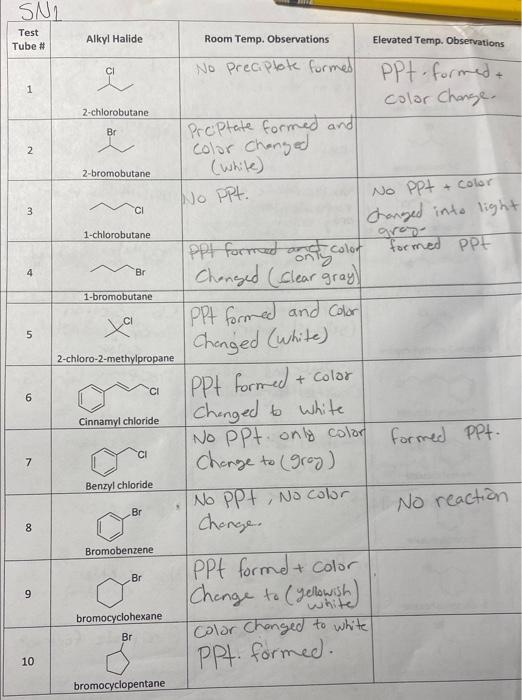 SN1
Test
Tube #
Alkyl Halide
Room Temp. Observations
Elevated Temp. Observations
1
Cl
2-chlorobutane
No preciplate formed
PPt. formed +
color change.
2
Br
2-bromobutane
Prciptate formed and
color changed
(white)
3
Cl
1-chlorobutane
No PPt.
No PPt + color
changed into light
gray
4
Br
1-bromobutane
PPt formed and color
only
Changed (clear gray)
formed PPt
5
Cl
2-chloro-2-methylpropane
PPt formed and color
Changed (white)
6
Cl
Cinnamyl chloride
PPt formed + color
Changed to white
7
Cl
Benzyl chloride
No PPt. only color
Change to (gray)
formed PPt.
8
Br
Bromobenzene
No PPt, No color
change.
No reaction
9
Br
bromocyclohexane
PPt formed + color
Change to (yellowish
white)
10
Br
bromocyclopentane
Color changed to white
PPt. formed.